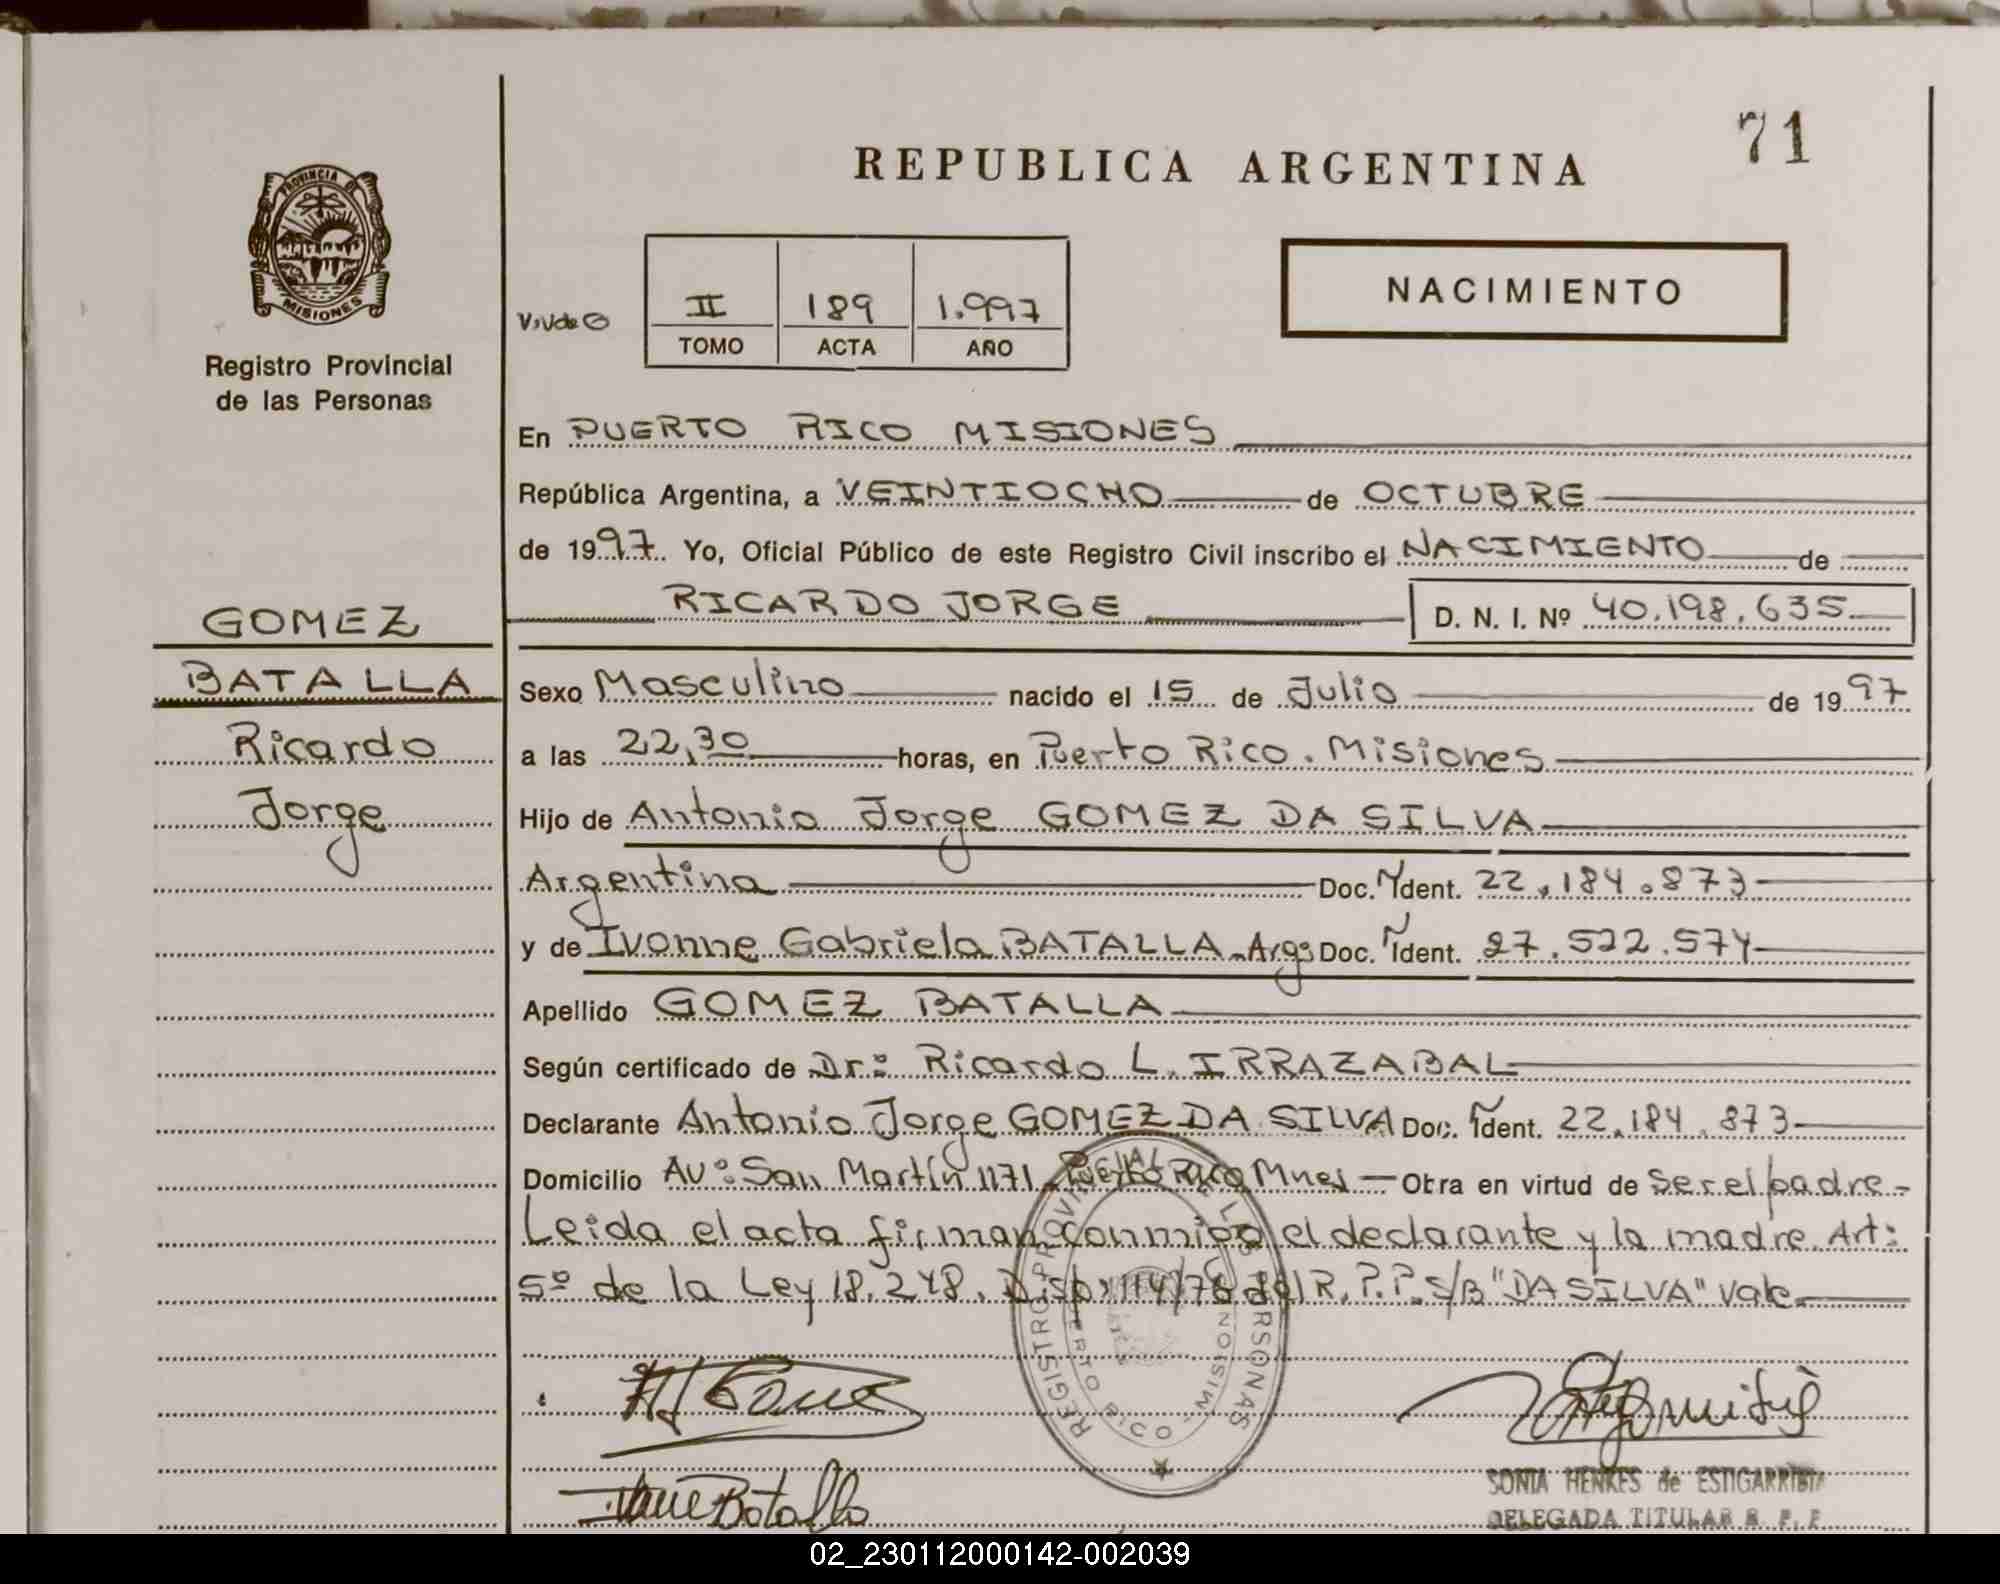 71
REPUBLICA ARGENTINA
PROVINCIA DE
MISIONES
NACIMIENTO
II 189 1.997
TOMO ACTA AÑO
Registro Provincial
de las Personas
En PUERTO RICO MISIONES
República Argentina, a VEINTIOCHO de OCTUBRE
de 1997. Yo, Oficial Público de este Registro Civil inscribo el NACIMIENTO de
RICARDO JORGE D. N. I. Nº 40.198.635
GOMEZ
BATALLA
Ricardo
Jorge
Sexo Masculino nacido el 15 de Julio de 1997
a las 22,30 horas, en Puerto Rico. Misiones
Hijo de Antonio Jorge GOMEZ DA SILVA
Argentina Doc. Ident. 22.184.873
y de Ivonne Gabriela BATALLA - Arg: Doc. Ident. 27.522.574
Apellido GOMEZ BATALLA
Según certificado de Dr: Ricardo L. IRRAZABAL
Declarante Antonio Jorge GOMEZ DA SILVA Doc. Ident. 22.184.873
Domicilio Av: San Martín 1171 Puerto Rico Mnes — Obra en virtud de ser el padre-
Leida el acta firman conmigo el declarante y la madre. Art:
5º de la Ley 18.248. Disp: 114/76 del R.P.P. S/B "DA SILVA" Vale
REGISTRO PROVINCIAL DE LAS PERSONAS
PUERTO RICO - MISIONES
Batalla
SONIA HENKES de ESTIGARRIBIA
DELEGADA TITULAR R. P. P.
02_230112000142-002039